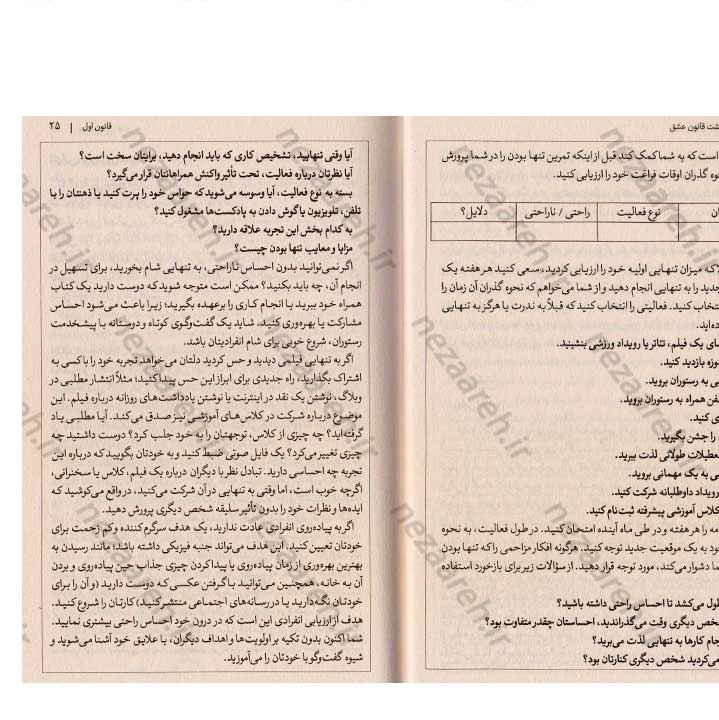 شت قانون عشق
است که به شما کمک کند قبل از اینکه تمرین تنها بودن را در شما پرورش
نحوه گذران اوقات فراغت خود را ارزیابی کنید.
نوع فعالیت
راحتی / ناراحتی
دلایل؟
میزان تنهایی اولیه خود را ارزیابی کردید، سعی کنید هر هفته یک
جدید را به تنهایی انجام دهید و از شما می‌خواهم که نحوه گذران آن زمان را
انتخاب کنید. فعالیتی را انتخاب کنید که قبلاً به ندرت یا هرگز به تنهایی
داده‌اید.
یک فیلم، تئاتر یا رویداد ورزشی بنشینید.
موزه بازدید کنید.
به رستوران بروید.
تلفن همراه به رستوران بروید.
کنید.
را جشن بگیرید.
تعطیلات طولانی لذت ببرید.
به یک مهمانی بروید.
رویداد داوطلبانه شرکت کنید.
کلاس آموزشی پیشرفته ثبت‌نام کنید.
را هر هفته و در طی ماه آینده امتحان کنید. در طول فعالیت، به نحوه
خود به یک موقعیت جدید توجه کنید. هرگونه افکار مزاحمی را که تنها بودن
دشوار می‌کند، مورد توجه قرار دهید. از سؤالات زیر برای بازخورد استفاده
طول می‌کشد تا احساس راحتی داشته باشید؟
شخص دیگری وقت می‌گذراندید، احساستان چقدر متفاوت بود؟
انجام کارها به تنهایی لذت می‌برید؟
می‌کردید شخص دیگری کنارتان بود؟
قانون اول | ۲۵
آیا وقتی تنهایید، تشخیص کاری که باید انجام دهید، برایتان سخت است؟
آیا نظرتان درباره فعالیت، تحت تأثیر واکنش همراهانتان قرار می‌گیرد؟
بسته به نوع فعالیت، آیا وسوسه می‌شوید که حواس خود را پرت کنید یا ذهنتان را با
تلفن، تلویزیون یا گوش دادن به پادکست‌ها مشغول کنید؟
به کدام بخش این تجربه علاقه دارید؟
مزایا و معایب تنها بودن چیست؟
اگر نمی‌توانید بدون احساس ناراحتی، به تنهایی شام بخورید، برای تسهیل در
انجام آن، چه باید بکنید؟ ممکن است متوجه شوید که دوست دارید یک کتاب
همراه خود ببرید یا انجام کاری را برعهده بگیرید؛ زیرا باعث می‌شود احساس
مشارکت یا بهره‌وری کنید. شاید یک گفت‌وگوی کوتاه و دوستانه با پیشخدمت
رستوران، شروع خوبی برای شام انفرادیتان باشد.
اگر به تنهایی فیلمی دیدید و حس کردید دلتان می‌خواهد تجربه خود را با کسی به
اشتراک بگذارید، راه جدیدی برای ابراز این حس پیدا کنید؛ مثلاً انتشار مطلبی در
وبلاگ، نوشتن یک نقد در اینترنت یا نوشتن یادداشت‌های روزانه درباره فیلم. این
موضوع درباره شرکت در کلاس‌های آموزشی نیز صدق می‌کند. آیا مطلبی یاد
گرفته‌اید؟ چه چیزی از کلاس، توجهتان را به خود جلب کرد؟ دوست داشتید چه
چیزی تغییر می‌کرد؟ یک فایل صوتی ضبط کنید و به خودتان بگویید که درباره این
تجربه چه احساسی دارید. تبادل نظر با دیگران درباره یک فیلم، کلاس یا سخنرانی،
اگرچه خوب است، اما وقتی به تنهایی در آن شرکت می‌کنید، در واقع می‌کوشید که
ایده‌ها و نظرات خود را بدون تأثیر سلیقه شخص دیگری پرورش دهید.
اگر به پیاده‌روی انفرادی عادت ندارید، یک هدف سرگرم‌کننده و کم زحمت برای
خودتان تعیین کنید. این هدف می‌تواند جنبه فیزیکی داشته باشد؛ مانند رسیدن به
بهترین بهره‌وری از زمان پیاده‌روی یا پیدا کردن چیزی جذاب حین پیاده‌روی و بردن
آن به خانه. همچنین می‌توانید با گرفتن عکسی که دوست دارید (و آن را برای
خودتان نگه دارید یا در رسانه‌های اجتماعی منتشر کنید) کارتان را شروع کنید.
هدف از ارزیابی انفرادی این است که در درون خود احساس راحتی بیشتری نمایید.
شما اکنون بدون تکیه بر اولویت‌ها و اهداف دیگران، با علایق خود آشنا می‌شوید و
شیوه گفت‌وگو با خودتان را می‌آموزید.
nezaareh.ir